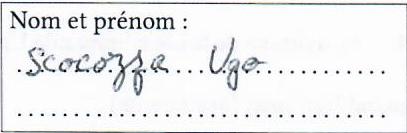 Nom et prénom :
Scocozza Ugo